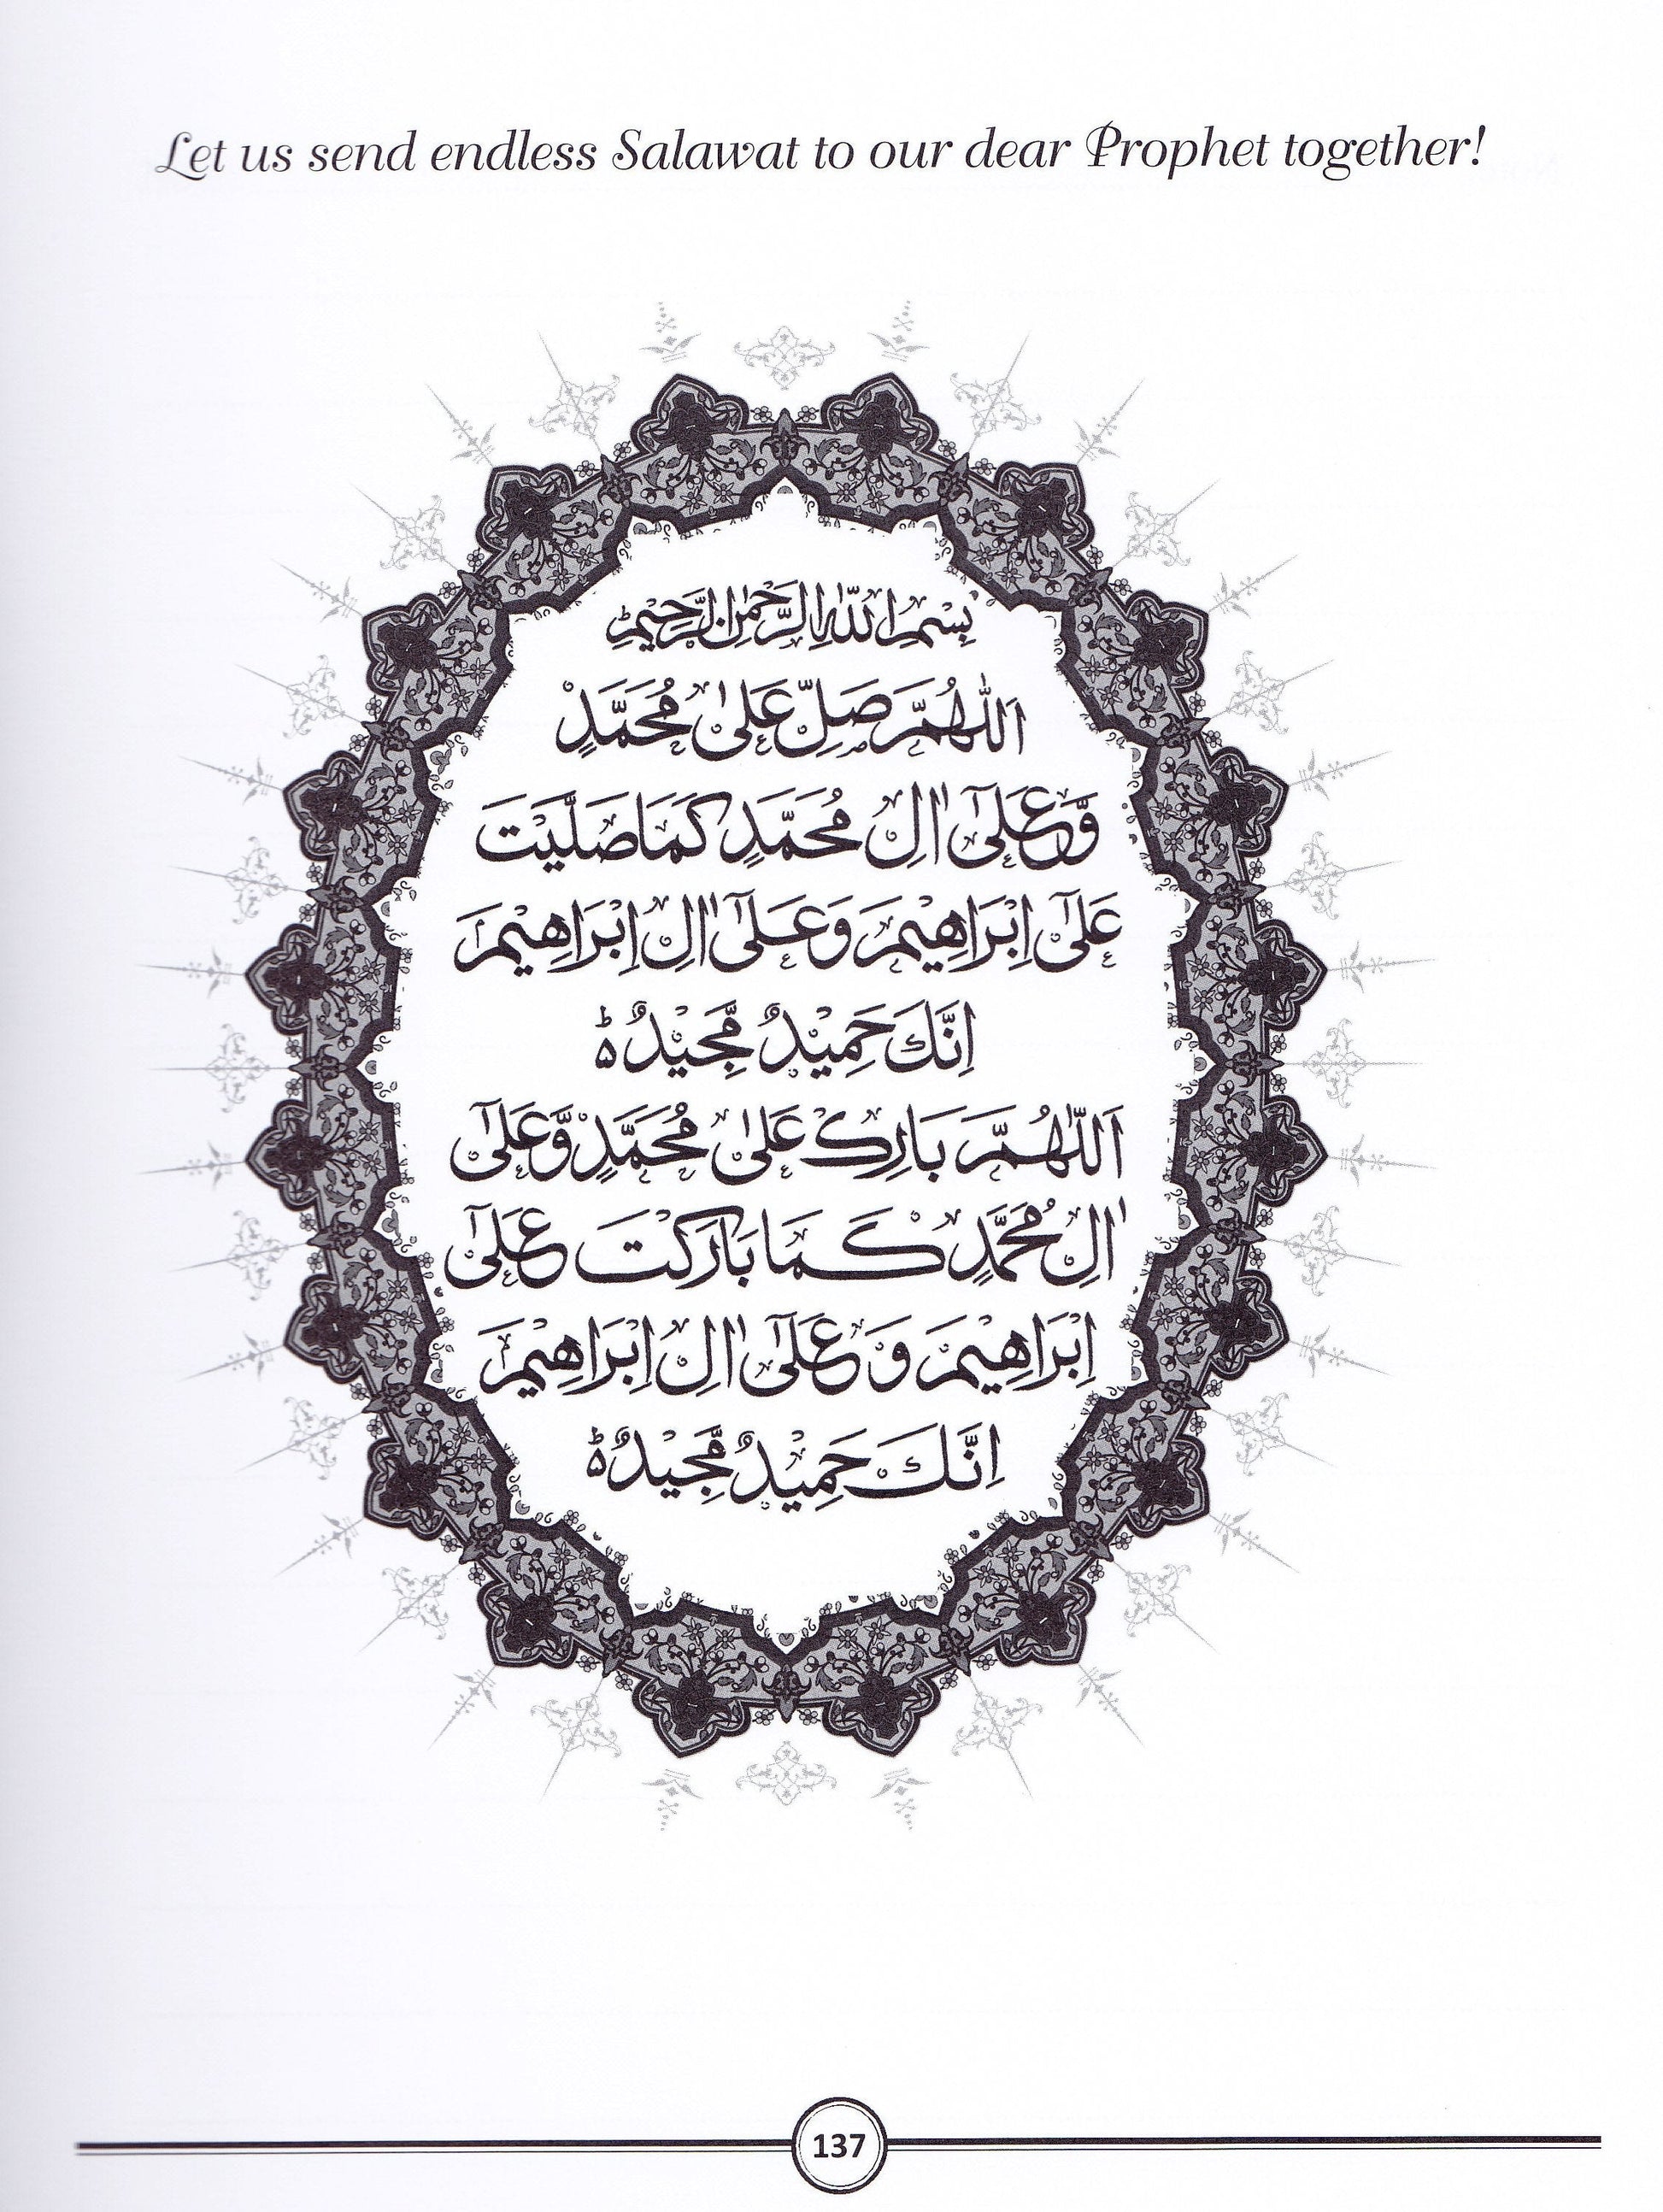 Let us send endless Salawat to our dear Prophet together!
بِسْمِ اللهِ الرَّحْمٰنِ الرَّحِيْمِؕ
اَللّٰهُمَّ صَلِّ عَلٰى مُحَمَّدٍ
وَّعَلٰٓى اٰلِ مُحَمَّدٍ كَمَا صَلَّيْتَ
عَلٰٓى اِبْرَاهِيْمَ وَعَلٰٓى اٰلِ اِبْرَاهِيْمَ
اِنَّكَ حَمِيْدٌ مَّجِيْدٌ ؕ
اَللّٰهُمَّ بَارِكْ عَلٰى مُحَمَّدٍ وَّعَلٰٓى
اٰلِ مُحَمَّدٍ كَمَا بَارَكْتَ عَلٰٓى
اِبْرَاهِيْمَ وَعَلٰٓى اٰلِ اِبْرَاهِيْمَ
اِنَّكَ حَمِيْدٌ مَّجِيْدٌ ؕ
137